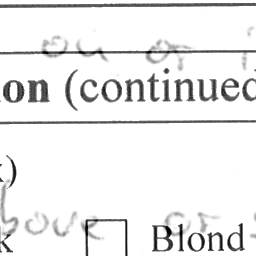 ou or
on (continued
)
bove or
k Blond